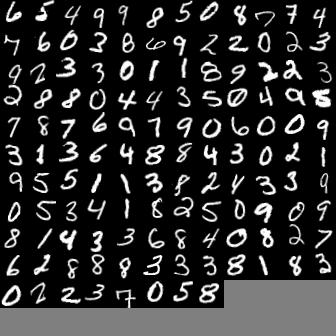 6 5 4 9 9 8 5 0 8 7 7 4
7 6 0 3 8 6 9 2 2 0 2 3
9 2 3 3 0 1 1 8 9 2 2 3
2 8 8 0 4 4 3 5 0 4 9 8
7 8 7 6 9 7 9 0 6 0 0 9
3 1 3 6 4 8 8 4 3 0 2 1
9 5 5 1 1 3 8 2 4 3 3 9
0 5 3 4 1 8 2 5 0 9 0 9
8 1 4 3 3 6 8 4 0 8 2 7
6 2 8 8 8 3 3 3 8 1 8 3
0 2 2 3 7 0 5 8